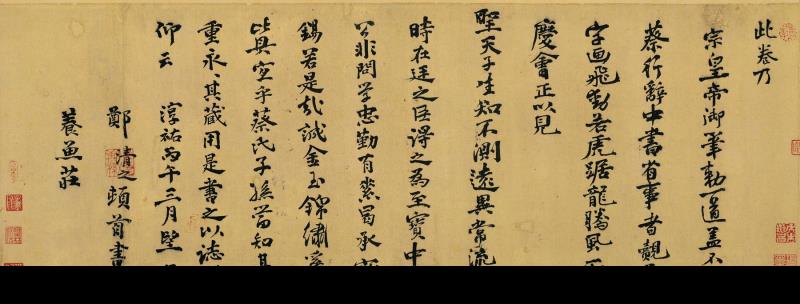 此卷乃
宗皇帝御筆勅一道盖不
蔡行辭中書省事者觀
字画飛動若虎踞龍騰風
慶會正以見
聖天子生知不測遠異常流
時在廷之臣得之為至寶中
公非問学忠勤有素曷承
錫若是哉誠金玉錦繡
比其空乎蔡氏子孫當知其
重永其藏用是書之以誌
仰云 淳祐丙午三月
鄭清之頓首書
養魚莊